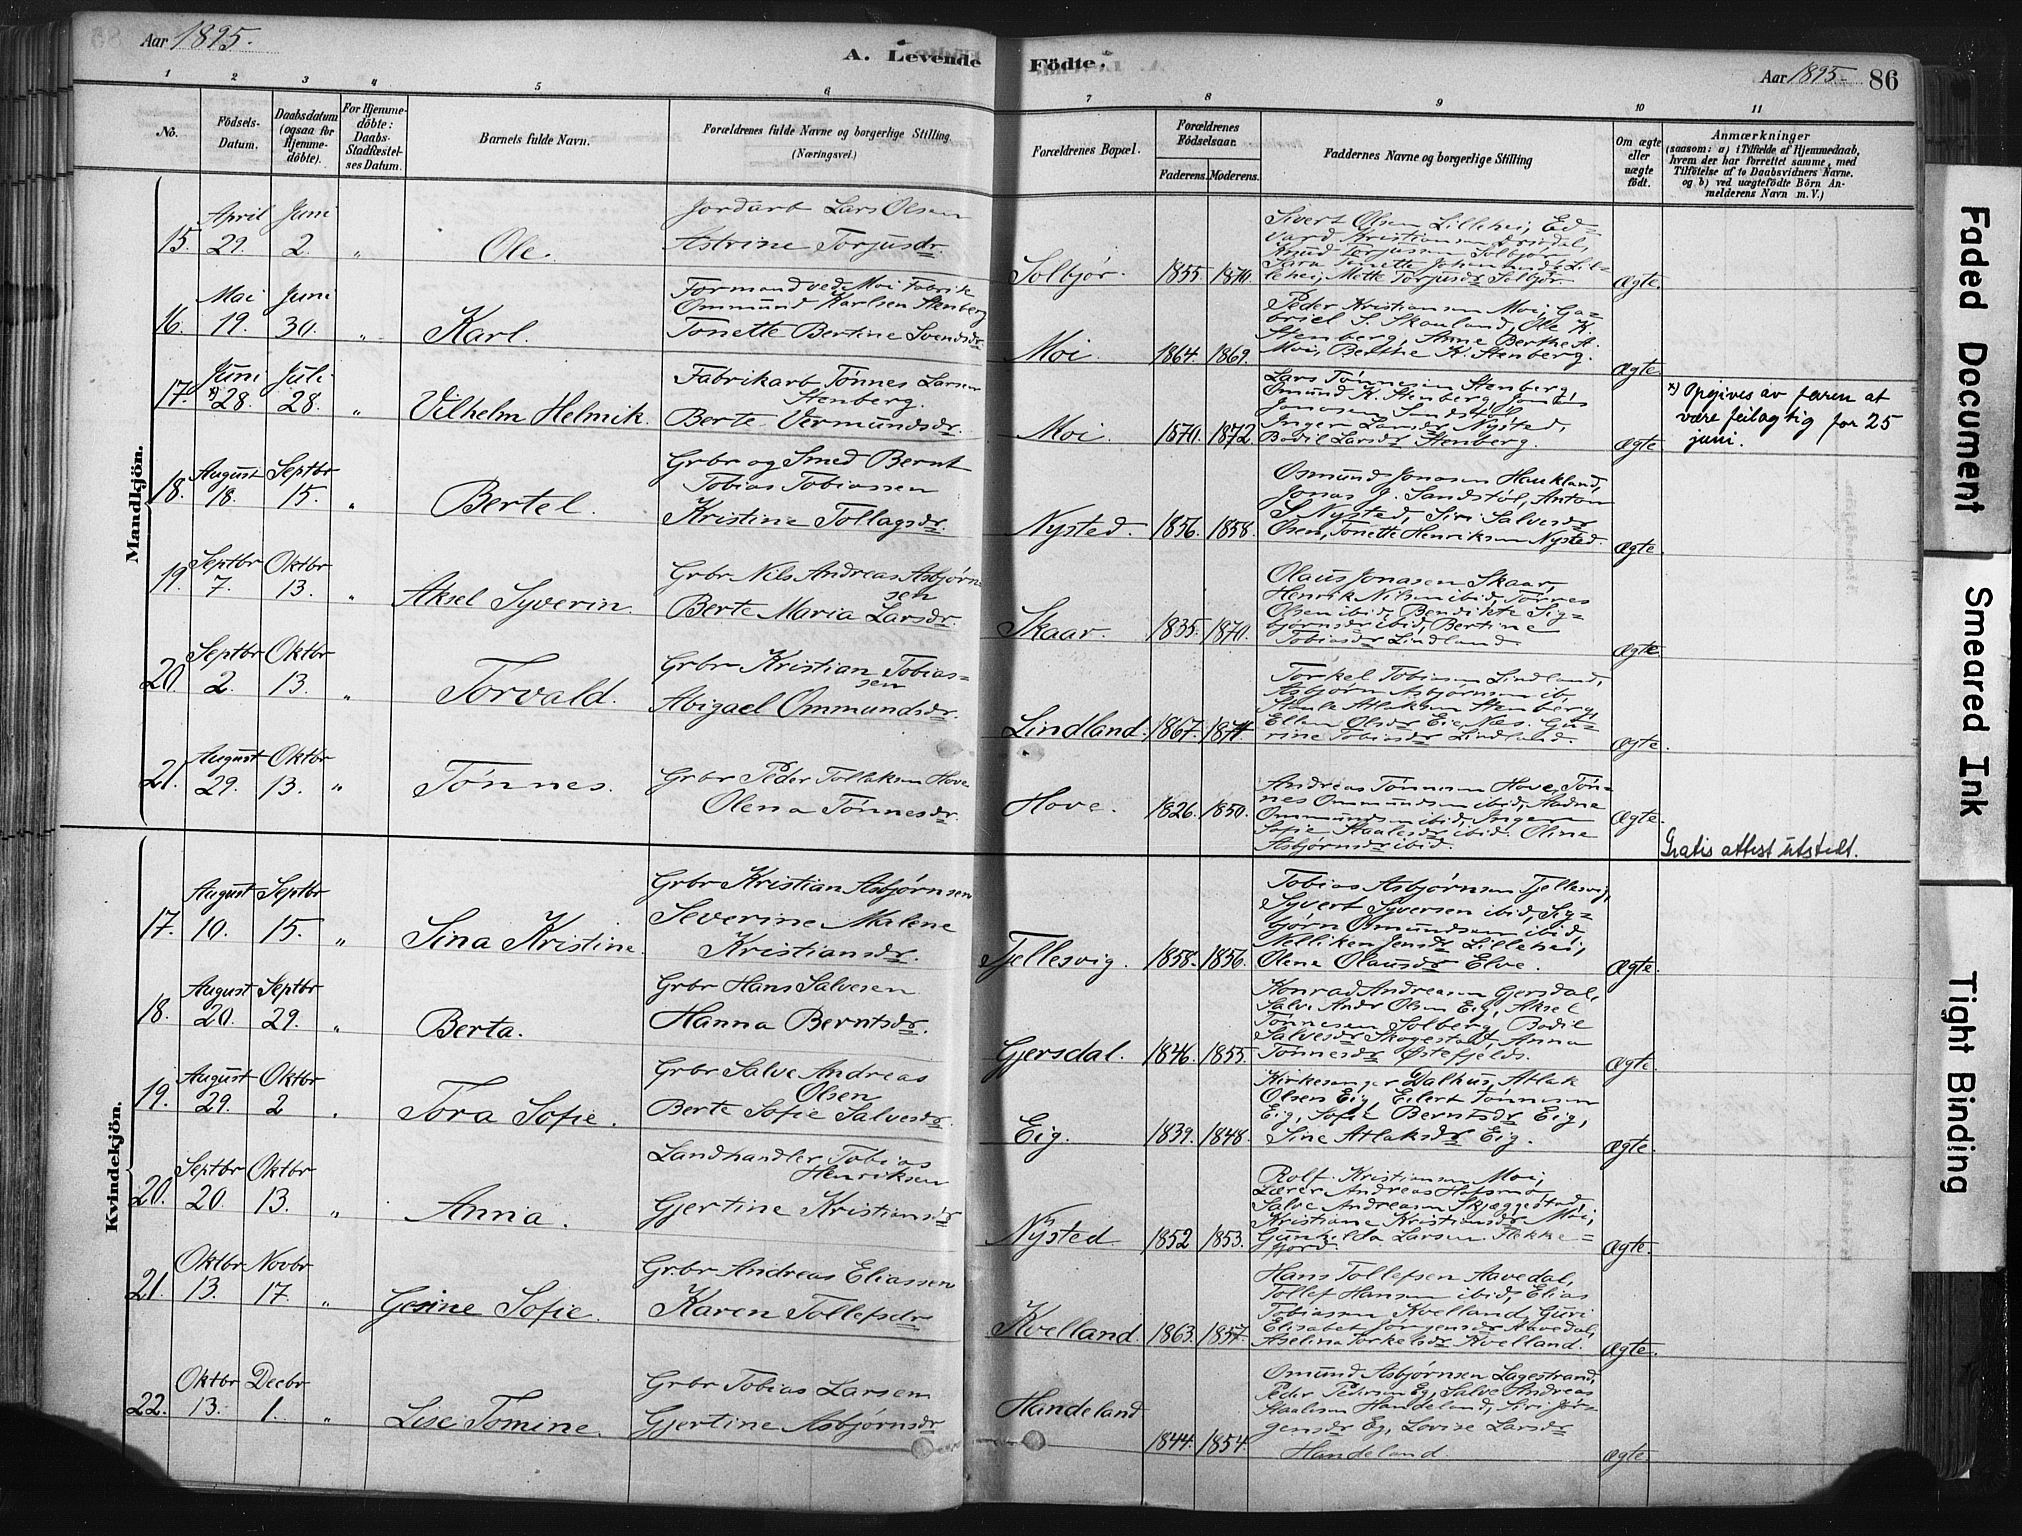 Aar 1895.
A. Levende Födte.
Aar 1895. 86
1 2 3 4 5 6 7 8 9 10 11
No.
Födsels-Datum.
Daabsdatum (ogsaa for Hjemme-döbte).
For Hjemme-döbte: Daabs-Stadfæstel-ses Datum.
Barnets fulde Navn.
Forældrenes fulde Navne og borgerlige Stilling. (Næringsvei.)
Forældrenes Bopæl.
Forældrenes Födselsaar.
Faderens. Moderens.
Faddernes Navne og borgerlige Stilling
Om ægte eller uægte födt.
Anmærkninger
(saasom: a) i Tilfælde af Hjemmedaab,
hvem der har forrettet samme, med
Tilföielse af to Daabsvidners Navne.
og b) ved uægtefödte Börn An-
melderens Navn m. V.)
Mandkjön.
15. April 29. Juni 2. " Ole.
Jordarb Lars Olsen
Astrine Torjusdr.
Solbjør. 1855. 1870.
Sivert Olsen Lillehei, Ed-
vard Kristiansen
Knud Torjussen Solbjør
Lil-
lehei, Mette Torjusdr Solbjør.
Ægte.
16. Mai 19. Juni 30. " Karl.
Formand ved Moi Fabrik
Ommund Karlsen Stenberg
Tonette Bertine Svendsdr.
Moi. 1864. 1869.
Peder Kristiansen Moi, Ga-
briel S. Skauland, Ole K.
Stenberg, Anne Berthe A.
Moi, Berthe K. Stenberg.
Ægte.
17. Juni x) 28. Juli 28. " Vilhelm Helmik.
Fabrikarb Tønnes Larsen
Stenberg.
Berte Vermundsdr.
Moi. 1870. 1872.
Lars Tønnesen Stenberg,
Omund K. Stenberg,
Jonasen Sandstøl,
Inger Larsdr Nysted,
Bodil Larsdr Stenberg.
Ægte.
x) Opgives av faren at
være feilagtig for 25
juni.
18. August 18. Septbr 15. " Bertel.
Grbr og Smed Bernt
Tobias Tobiassen
Kristine Tollagsdr.
Nysted. 1856. 1858.
Osmund Jonasen Haukland,
Jonas J. Sandstøl, Anton
S Nysted, Siri Salvesdr
Olsen, Tonette Henriksen Nysted.
Ægte.
19. Septbr 7. Oktbr 13. " Aksel Syverin.
Grbr Nils Andreas Asbjørn-
sen
Berte Maria Larsdr.
Skaar. 1835. 1870.
Olaus Jonasen Skaar,
Henrik Nilsen ibid, Tønnes
Olsen ibid, Bendikte Sig-
bjørnsdr ibid, Bertine
Tobiasdr Lindland.
Ægte.
20. Septbr 2. Oktbr 13. " Torvald.
Grbr Kristian Tobias-
sen
Abigael Ommundsdr.
Lindland. 1867. 1871.
Torkel Tobiasen Lindland,
Asbjørn Asbjørnsen ib
Staale Atlaksen Stenberg,
Ellen Olsdr Eie Næs. Gu-
rine Tobiasdr Lindland.
Ægte.
21. August 29. Oktbr 13. " Tønnes.
Grbr Peder Tollaksen Hove
Olena Tønnesdr.
Hove. 1826. 1850.
Andreas Tønnesen Hove, Tøn-
nes Ommundsen ibid, Aadne
Ommundsen ibid, Inger
Sofie Staalesdr ibid. Oline
Asbjørnsdr ibid.
Ægte.
Gratis attest utstedt.
Kvindekjön.
17. August 10. Septbr 15. " Sina Kristine.
Grbr Kristian Asbjørnsen
Severine Malene
Kristiansdr.
Fjellesvig. 1858. 1856.
Tobias Asbjørnsen Fjellesvig,
Syvert Syversen ibid, Sig-
bjørn Osmundsen ibid
Nelliken Jensdr Lillehei,
Olene Olausdr Elve.
Ægte.
18. August 20. Septbr 29. " Berta.
Grbr Hans Salvesen
Hanna Berntsdr.
Gjersdal. 1846. 1855.
Konrad Andreasen Gjersdal,
Salve Andr Olsen Eig, Aksel
Tønnesen Solberg, Bodil
Salvesdr Skogestad, Anna
Tønnesdr Østefjeld.
Ægte.
19. August 29. Oktbr 2 " Tora Sofie.
Grbr Salve Andreas
Olsen
Berte Sofie Salvesdr.
Eig. 1839. 1848.
Kirkesanger Dalhus, Atlak
Olsen Eig, Eilert Tønnesen
Eig, Sofie Berntsdr Eig,
Sine Atlaksdr Eig.
Ægte.
20. Septbr 20. Oktbr 13. " Anna.
Landhandler Tobias
Henriksen
Gjertine Kristiansdr
Nysted 1852 1853.
Rolf Kristiansen Moi,
Lærer Andreas Hafsmo,
Salve Andreasen Skjæggestad,
Kristiane Kristiansdr Moi,
Gunhilda Larsen Flekke-
fjord.
Ægte.
21. Oktbr 13. Novbr 17. " Gesine Sofie.
Grbr Andreas Eliassen
Karen Tollefsdr
Kvelland. 1863. 1857.
Hans Tollefsen Aavedal,
Tollef Hansen ibid, Elias
Tobiassen Kvelland, Guri
Elisabet Jørgensdr Aavedal,
Aselina Torkelsdr Kvelland.
Ægte.
22. Oktbr 13. Decbr 1. " Lise Tomine.
Grbr Tobias Larsen
Gjertine Asbjørnsdr
Handeland 1844. 1854.
Omund Asbjørnsen Lagestrand,
Peder Pedersen Eg, Salve Andreas
Staalesen Handeland, Siri Jør-
gensdr Eg, Lovise Larsdr
Handeland.
Ægte.
Faded Document
Smeared Ink
Tight Binding